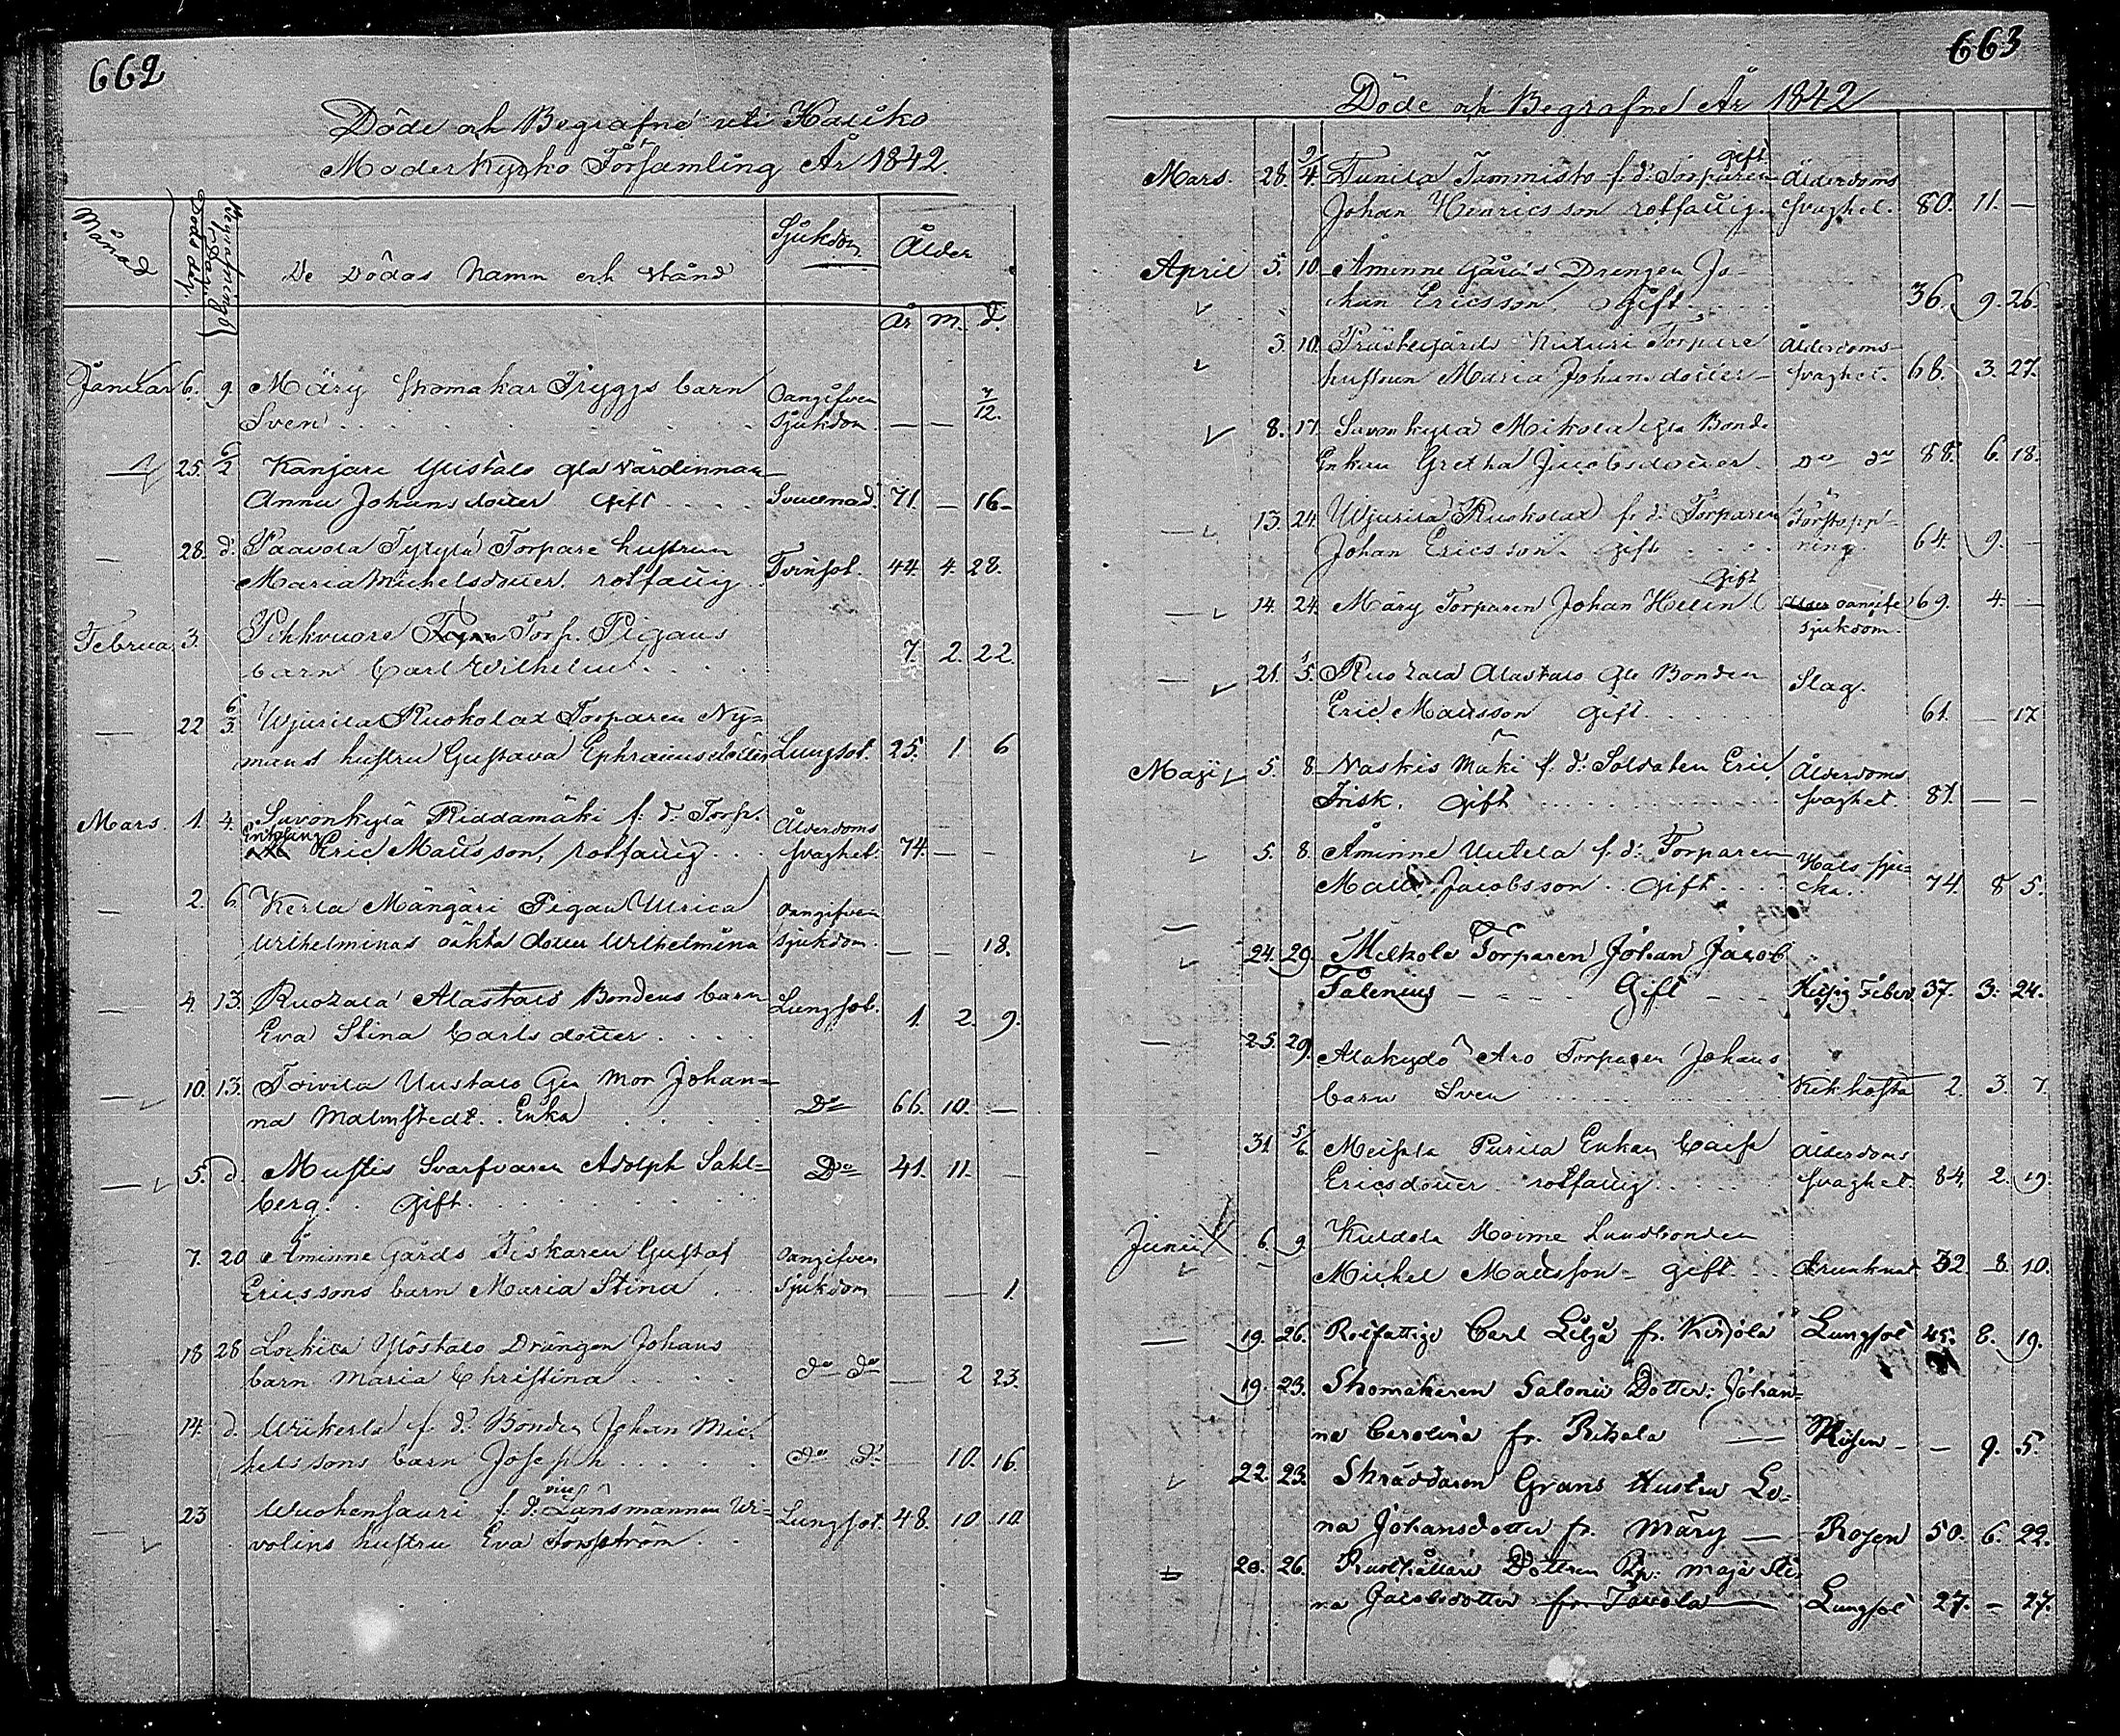 662
Döde och Begrafne uti Hauko
Moderkyrko Församling År 1842.
Månad
Döds dag.
Begrafnings dag.
De Dödas Namn och stånd
Sjukdom
Ålder
år m. d.
Januar 6. 9. Märy Skomakar Tryggs barn Oangifven
Sven . . . sjukdom. — — 7/12.
25. 6/2 Kanjare Ylistalo gla värdinnan
Anna Johansdotter Gift . . . Svullnad. 71. — 16-
— 28. d. Paavola Tyкylä Torpare hustrun
Maria Michelsdotter rotfattig Tvinsot 44. 4. 28.
Februa 3. Pihkvuore Torp. Pigans
barn Carl Wilhelm . . . 7. 2. 22.
— 22 6/3. Wjurila Ruokolax Torparen Ny=
mans hustru Gustava Ephraimsdotter Lungsot. 25. 1. 6
Mars. 1. 4. Savonkylä Riddamäki f. d. Torp. Ålderdoms
Enkling Eric Matsson, rotfattig . . . svaghet. 74. — -
— 2. 6. Kerla Mängäri Pigan Ulrica Oangifven
Wilhelminas oäkta dotter Wilhelmina sjukdom. — — 18.
— 4. 13. Ruotala Alastalo Bondens barn Lungsot.
Eva Stina Carlsdotter . . . . 1. 2. 9.
— 10. 13. Toivila Uustalo Gla Mor Johan=
na Malmstedt. . Enka . . . Do 66. 10. —
— 5. d. Mustis Svarfvaren Adolph Sahl= Do 41. 11. —
berg. . Gift. . . .
7. 20 Åminne Gårds Fiskaren Gustaf Oangifven
Ericssons barn Maria Stina . . sjukdom — — 1.
18 28 Lockila Ylöstalo Drängen Johans
barn Maria Christina . . . . do do — 2 23.
14. d. Märkerla f. d. Bonden Johan Mic=
helssons barn Joseph . . . . do do — 10. 16.
23 Wuohensauri f. d. vice Länsmannen Wi= Lungsot. 48. 10 10.
volins hustru Eva Forsström . .
663
Döde och Begrafne År 1842
Mars. 28. 9/4. Tunila Tammisto f. d. Torparen gift Ålderdoms
Johan Henricsson rotfattig. svaghet. 80. 11. —
April 5. 10. Åminne Gårds Drengen Jo-
han Ericsson. Gift . . . 36. 9. 26.
3. 10. Prästegårds Kuturi Torpare Ålderdoms-
hustrun Maria Johansdotter - svaghet. 68. 3. 27.
8. 17. Savonkylä Mikola gla Bonde
Enkan Gretha Jacobsdotter. do do 88. 6. 18.
— 13. 24. Wjurila Ruokolax f. d. Torparen Förstopp-
Johan Ericsson. Gift . . . . ning. 64. 9. -
— 14. 24. Märy Torparen Johan Helin Gift oangifv. 69. 4. —
sjukdom.
— 21. 1/5. Ruotala Alastalo Gle Bonden Slag.
Eric Matsson Gift . . . . 61. — 17
Maji 5. 8. Naskis Mäki f. d. Soldaten Eric Ålderdoms
Frisk. Gift . . . . svaghet. 81. — —
5. 8. Åminne Uutela f. d. Torparen Hals sju-
Matts Jacobsson . . Gift . . . ka. 74. 8 5.
— 24. 29. Melkola Torparen Johan Jacob
Falenius — - - Gift — - Hetsig Feber. 37. 3. 24.
— 25. 29. Alakydö Aro Torparen Johans
barn Sven . . . . Kikhosta 2. 3. 7.
- 31 5/6. Meisala Purila Enkan Caisa Ålderdoms
Ericsdotter rotfattig . . . svaghet. 84. 2. 19.
Junii 6. 9. Kuldola Hoime Landbonden
Michel Matsson - gift . . drunknat 32. 8. 10.
— 19. 26. Rotfattige Carl Lilja fr. Kirjola Lungsot 45. 8. 19.
19. 23. Skomakaren Salonii Dotter: Johan=
na Carolina fr. Rikala — Rosen - - 9. 5.
22. 23. Skräddaren Grans Hustru Le=
na Johansdotter fr. Märy — Rosen 50. 6. 22.
20. 26. Rusthållare Dottren Pig. Maja Sti=
na Jacobsdotter fr. Tavola — Lungsot 27. - 27.